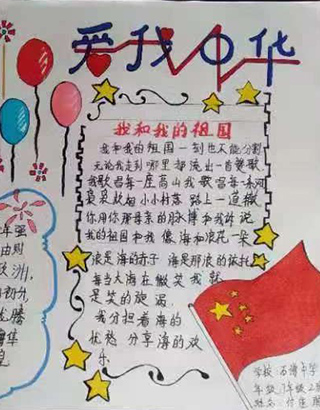 爱我中华
我和我的祖国
我和我的祖国一刻也不能分割
无论我走到哪里都流出一首赞歌
我歌唱每一座高山我歌唱每一条河
袅袅炊烟小小村落路上一道辙
你用你那母亲的脉搏和我诉说
我的祖国和我像海和浪花一朵
浪是海的赤子海是那浪的依托
每当大海在微笑我就
是笑的旋涡
我分担着海的
忧愁分享海的欢
乐
年强
由则
欧洲
腾
学校
年级7年级2
姓名